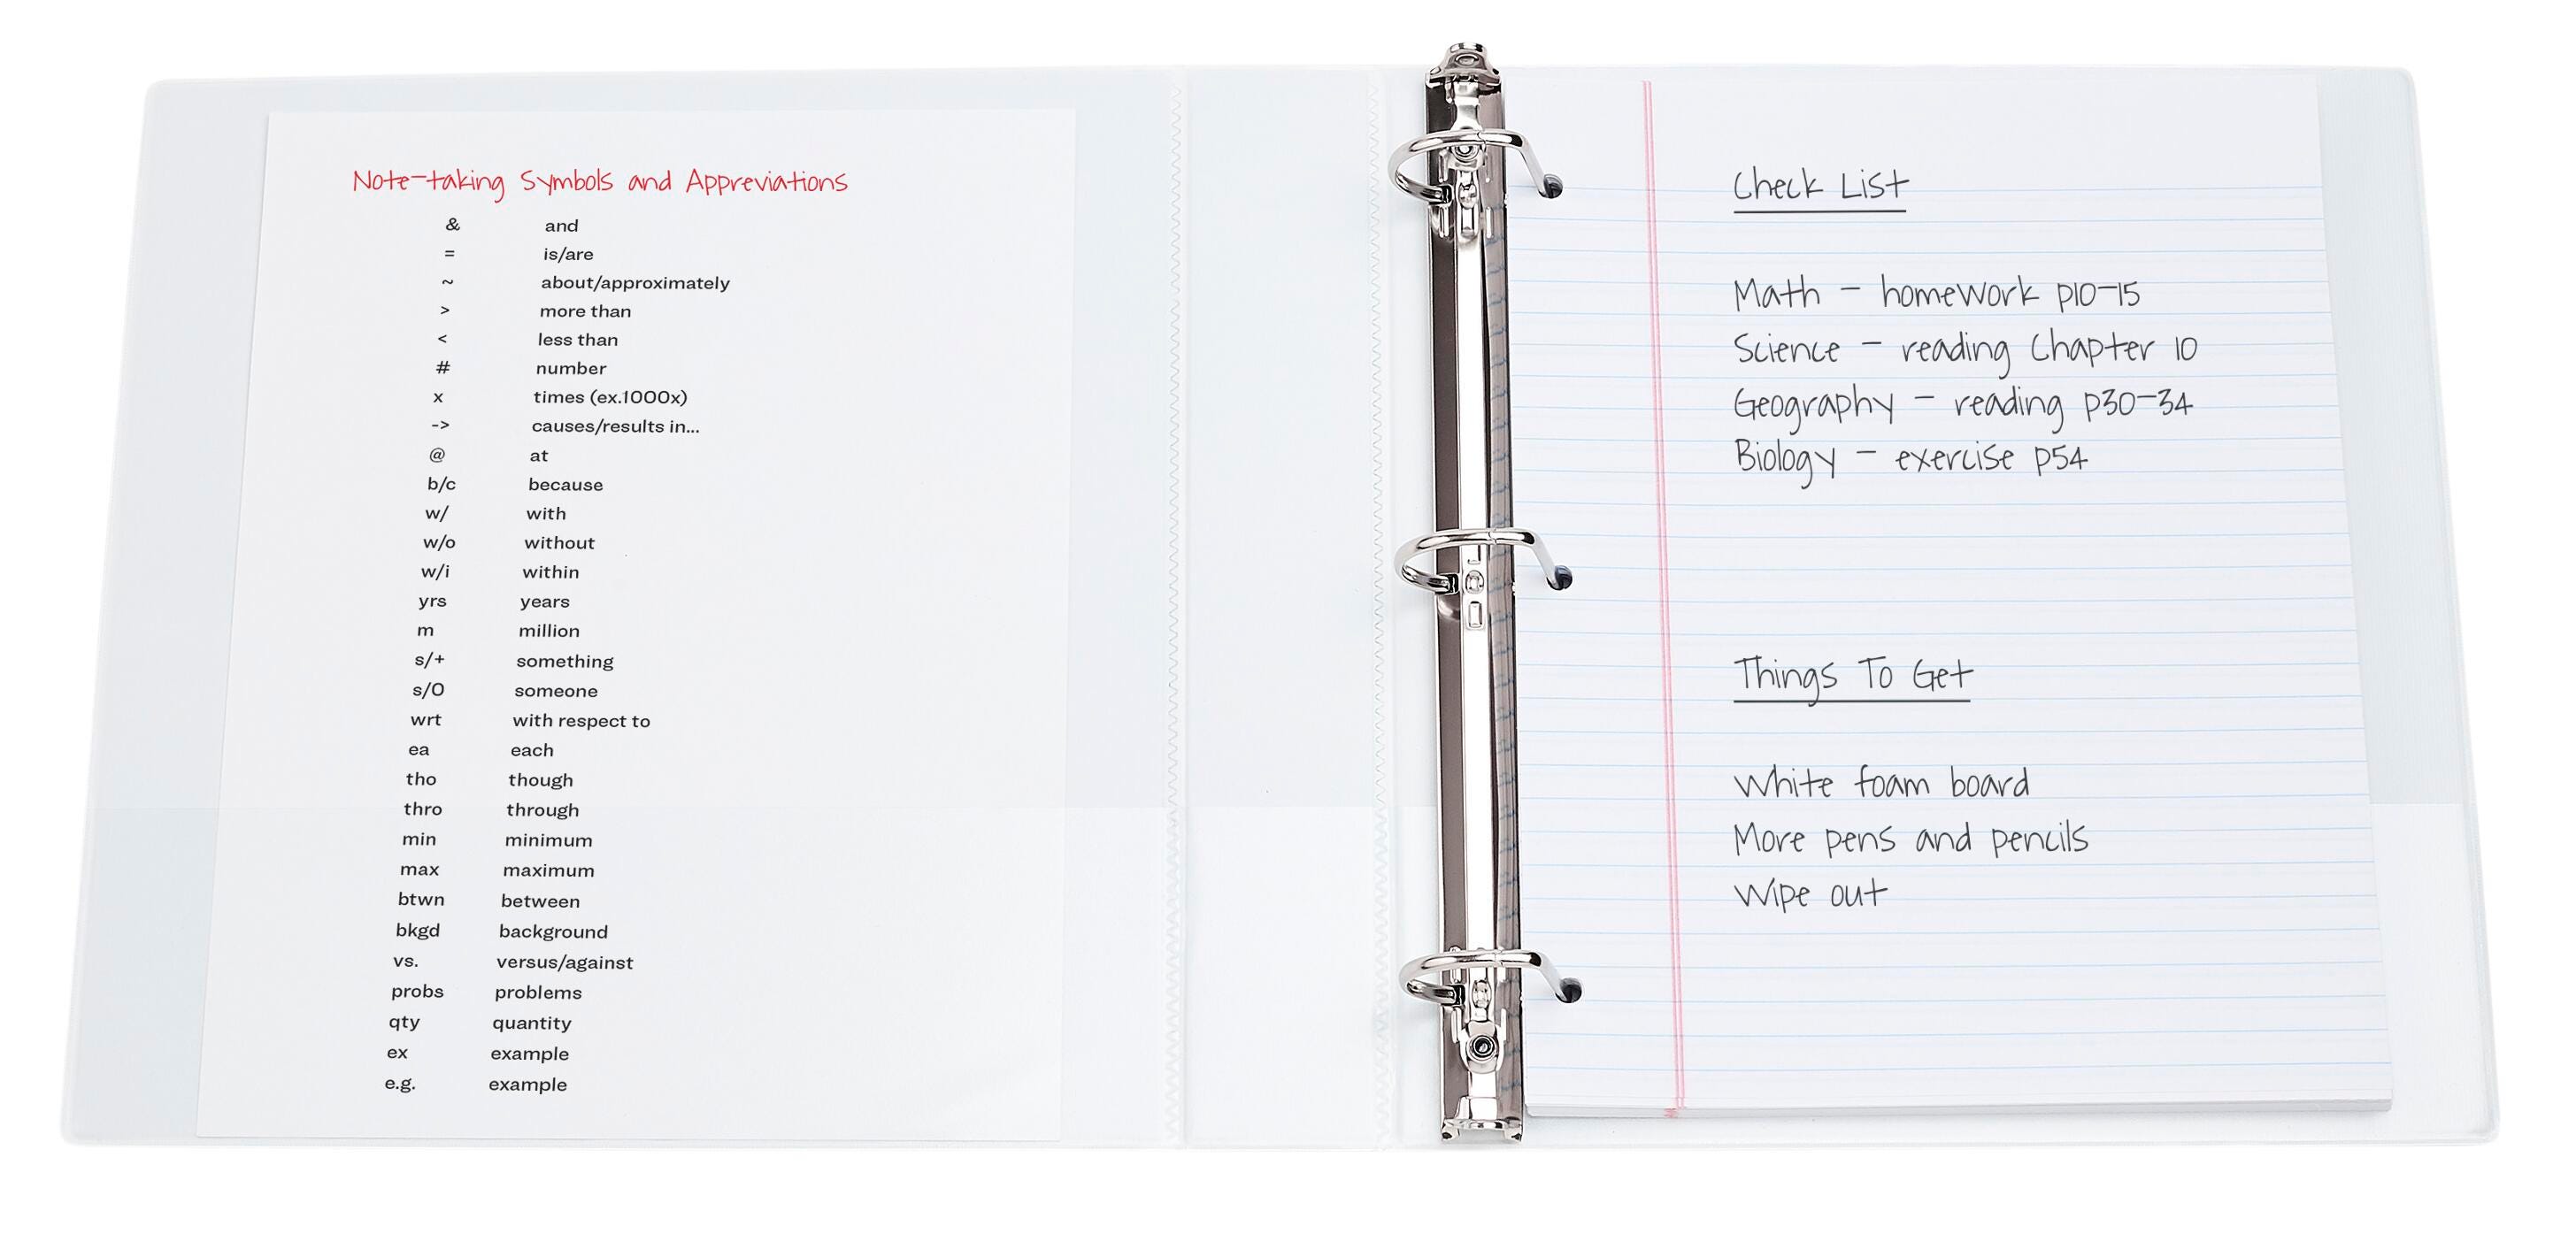 Note-taking Symbols and Appreviations
& and
= is/are
~ about/approximately
> more than
< less than
# number
x times (ex.1000x)
-> causes/results in...
@ at
b/c because
w/ with
w/o without
w/i within
yrs years
m million
s/+ something
s/O someone
wrt with respect to
ea each
tho though
thro through
min minimum
max maximum
btwn between
bkgd background
vs. versus/against
probs problems
qty quantity
ex example
e.g. example
Check List
Math - homework p10-15
Science - reading Chapter 10
Geography - reading p30-34
Biology - exercise p54
Things To Get
White foam board
More pens and pencils
Wipe out